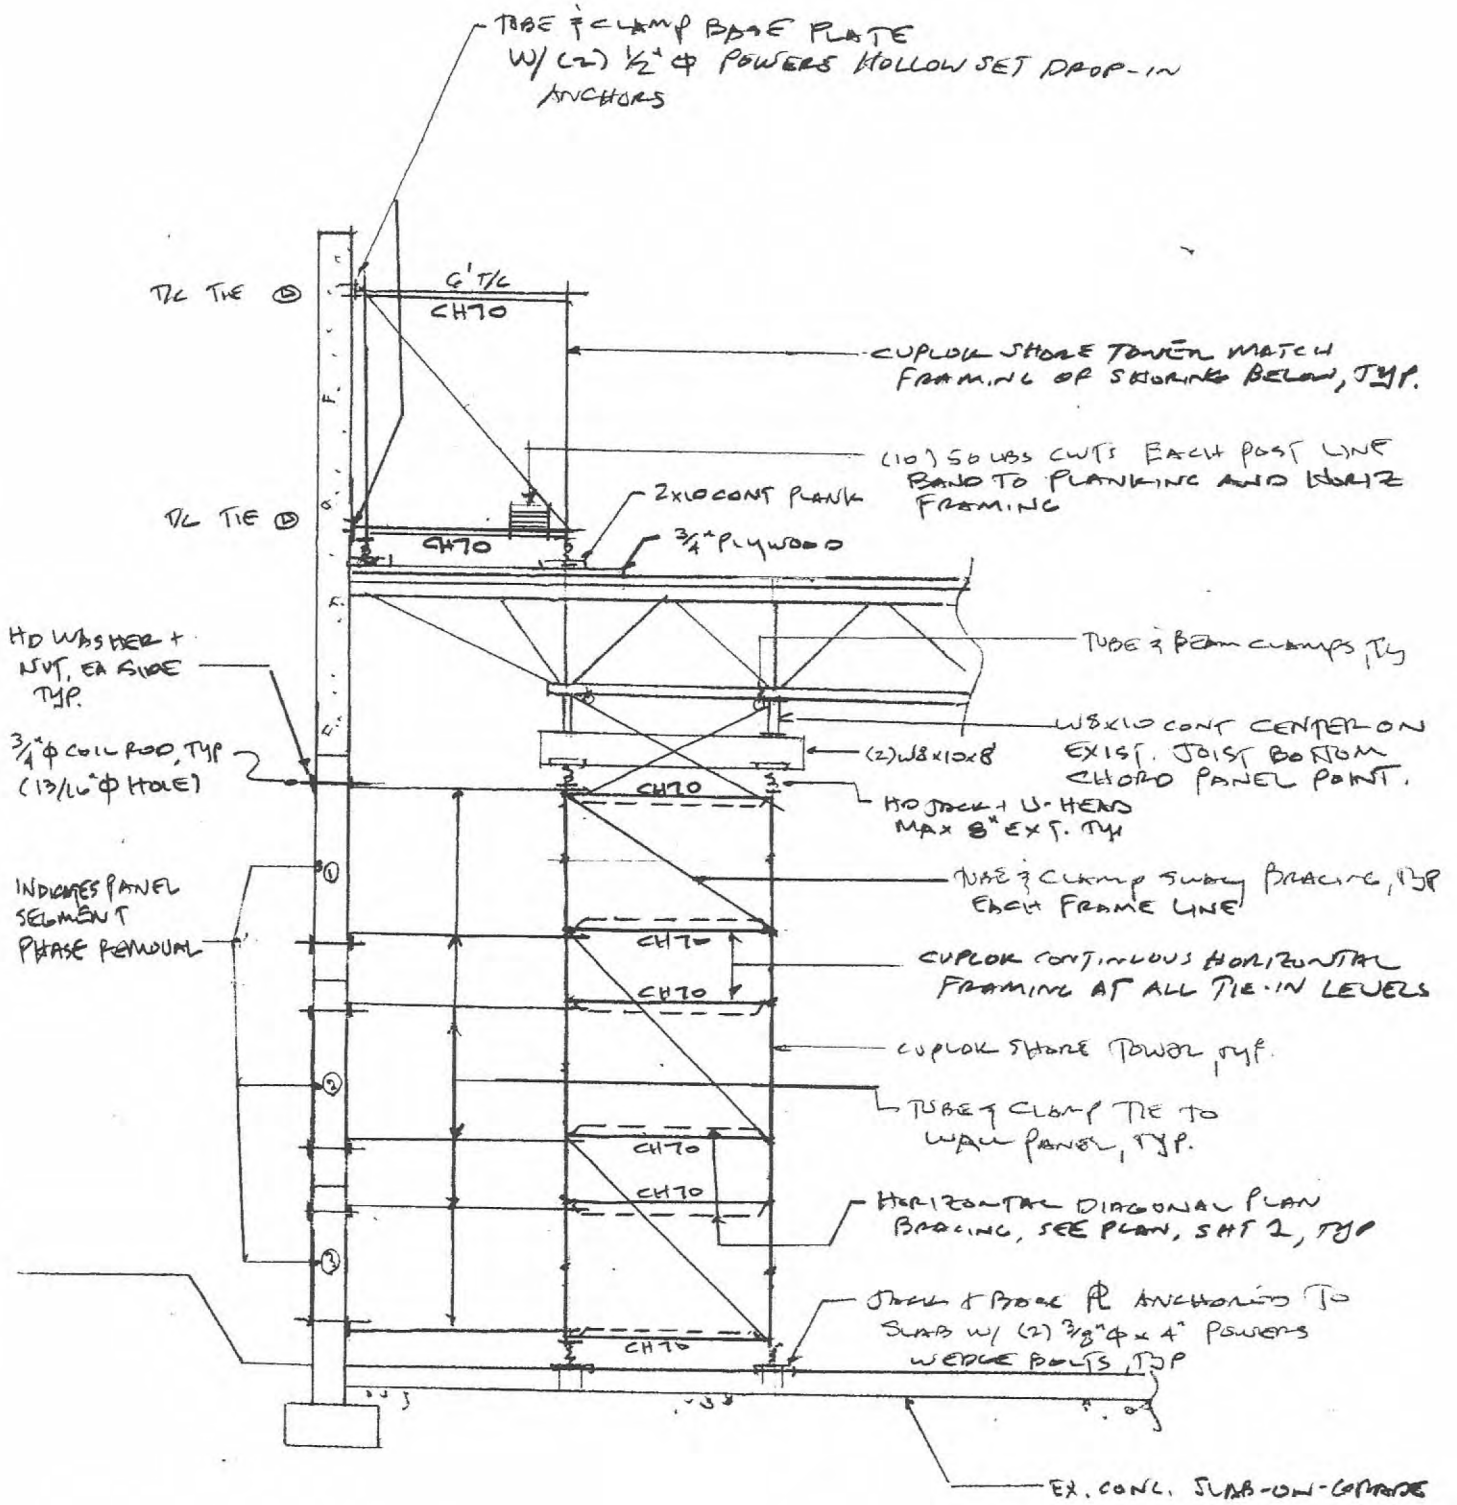 TUBE & CLAMP BASE PLATE
W/ (2) 1/2" Φ POWERS HOLLOW SET DROP-IN
ANCHORS
T/C TIE
6' T/C
CH70
CUPLOK SHORE TOWER MATCH
FRAMING OF SHORING BELOW, TYP.
(10) 50 LBS CWTS EACH POST LINE
BAND TO PLANKING AND HORIZ
FRAMING
2x10 CONT PLANK
T/C TIE
CH70
3/4" PLYWOOD
HD WASHER +
NUT, EA SIDE
TYP.
TUBE & BEAM CLAMPS, TY
3/4" Φ COIL ROD, TYP
(13/16" Φ HOLE)
W8x10 CONT CENTER ON
EXIST. JOIST BOTTOM
CHORD PANEL POINT.
(2) W8x10x8
CH70
HD JACK + U-HEAD
MAX 8" EXT. TYP
1
INDICATES PANEL
SEGMENT
PHASE REMOVAL
TUBE & CLAMP SWAY BRACING, TYP
EACH FRAME LINE
CH70
CUPLOK CONTINUOUS HORIZONTAL
FRAMING AT ALL TIE-IN LEVELS
CH70
CUPLOK SHORE TOWER, TYP.
2
TUBE & CLAMP TIE TO
WALL PANEL, TYP.
CH70
CH70
HORIZONTAL DIAGONAL PLAN
BRACING, SEE PLAN, SHT 2, TYP
3
JACK & BASE PL ANCHORED TO
SLAB W/ (2) 3/8" Φ x 4" POWERS
WEDGE BOLTS, TYP
CH70
EX. CONC. SLAB-ON-GRADE